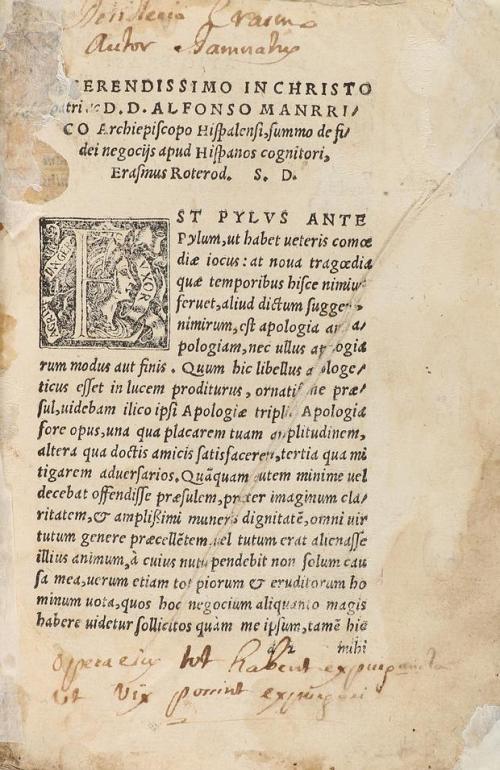 Desiderio Erasmo
Autor damnatus
ERENDISSIMO IN CHRISTO
patri ac D. D. ALFONSO MANRRI/
CO Archiepiscopo Hiſpalenſi, ſummo de fi/
dei negocijs apud Hiſpanos cognitori,
Eraſmus Roterod. S. D.
ST PYLVS ANTE
Pylum, ut habet ueteris comœ
diæ iocus: at noua tragœdia
quæ temporibus hiſce nimium
feruet, aliud dictum ſugge
nimirum, eſt apologia an a/
pologiam, nec ullus ap ogia
VXOR
rum modus aut finis. Quum hic libellus a ologe/
ticus eſſet in lucem proditurus, ornatiſ me præ/
ſul, uidebam ilico ipſi Apologiæ tripli Apologia
fore opus, una qua placarem tuam amplitudinem,
altera qua doctis amicis ſatisfacerem, tertia qua mi
tigarem aduerſarios. Quãquam autem minime uel
decebat offendiſſe præſulem, præter imaginum cla/
ritatem, & ampliſſimi muneris dignitatẽ, omni uir
tutum genere præcellẽtem, uel tutum erat alienaſſe
illius animum, à cuius nutu pendebit non ſolum cau
ſa mea, uerum etiam tot piorum & eruditorum ho
minum uota, quos hoc negocium aliquanto magis
habere uidetur ſollicitos quàm me ipſum, tamẽ hic
a 2 mihi
opera eius tot habent expurganda
ut vix possint expurgari